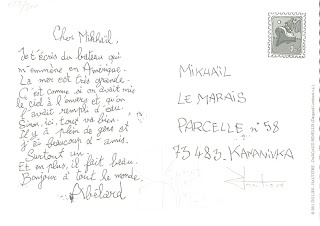 Cher Mikhaïl,
Je t'écris du bateau qui
m'emmène en Amérique.
La mer est très grande.
C'est comme si on avait mis
le ciel à l'envers et qu'on
l'avait rempli d'eau.
Sinon, ici, tout va bien.
Il y a plein de gens et
j'ai beaucoup d'amis.
Surtout un.
Et en plus, il fait beau.
Bonjour à tout le monde.
Abélard
MIKHAÏL
LE MARAIS
PARCELLE n° 58
73483. KAMANIVKA